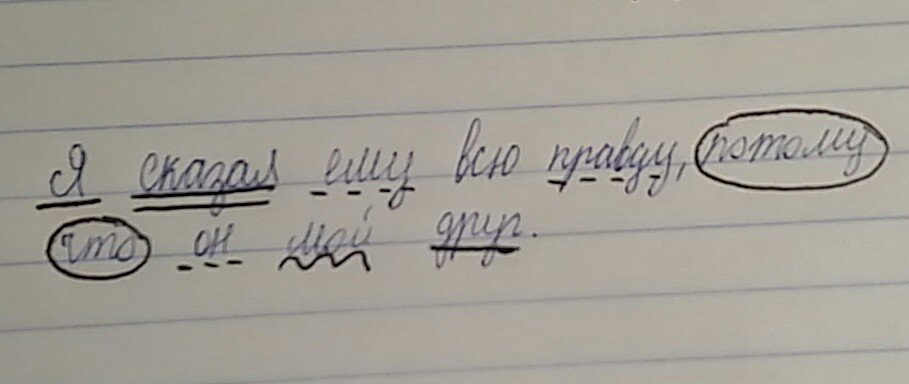 Я сказал ему всю правду, потому
что он мой друг.